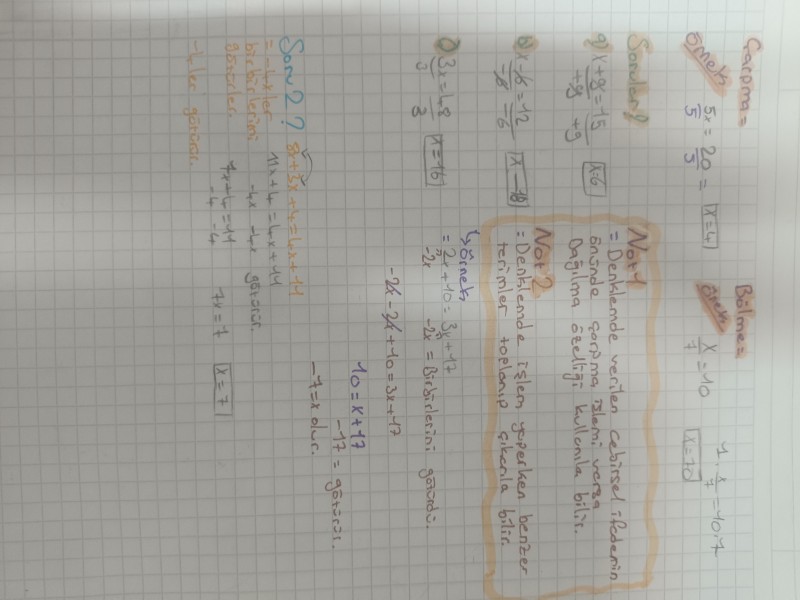 Çarpma =
Örnek
5x = 20 = x=4
5 5
Bölme =
Örnek x/7 = 10
7 . x/7 = 10.7
x=70
Sorular?
a) x+9=15 x=6
+9 +9
b) x-6=12 x-18
-6 -6
c) 3x=48 x=16
3 3
Not 1
= Denklemde verilen cebirsel ifadenin
önünde çarpma işlemi varsa
Dağılma özelliği kullanıla bilir.
Not 2
= Denklemde işlem yaparken benzer
terimler toplanıp çıkarıla bilir.
↳ örnek
= 2x+10=3x+17
-2x -2x = Birbirlerini götürdü.
-2x-2x+10=3x+17
10=x+17
-17 = götürür.
-7=x olur.
Soru 2 ? 8x+3x+4=4x+11
= -4x ler 11x+4=4x+11
birbirlerini -4x -4x götürür.
götürürler. 7x+4=11 7x=7 x=7
-4 -4
-4 ler götürür.